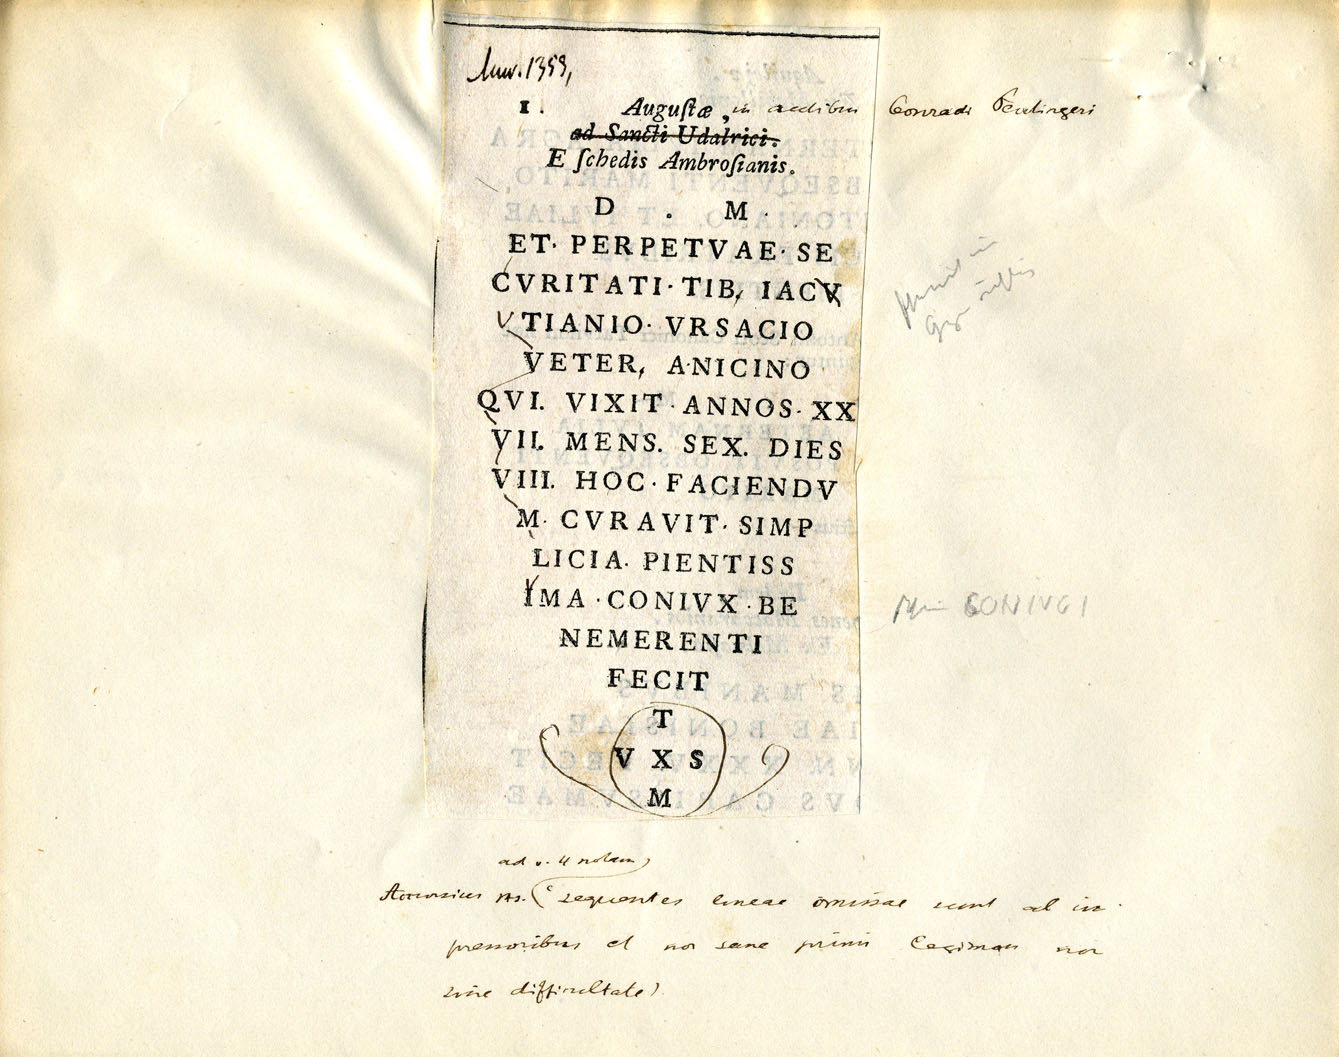 Mur. 1359,
1. Augustæ, in aedibus Conradi Peutingeri
ad Sancti Udalrici.
E schedis Ambrosianis.
D . M .
ET· PERPETVAE· SE
CVRITATI · TIB, IACV
VTIANIO· VRSACIO
VETER, A·NICINO
QVI. VIXIT · ANNOS· XX
VII. MENS. SEX. DIES
VIII. HOC · FACIENDV
M· CVRAVIT · SIMP
LICIA· PIENTISS
IMA · CONIVX · BE
NEMERENTI
FECIT
T
V X S
M
CONIVGI
ad v. 4 notam
Accursius ms. (sequentes lineae omissae sunt ab im
pressoribus et nos sane primi legimus non
sine difficultate)